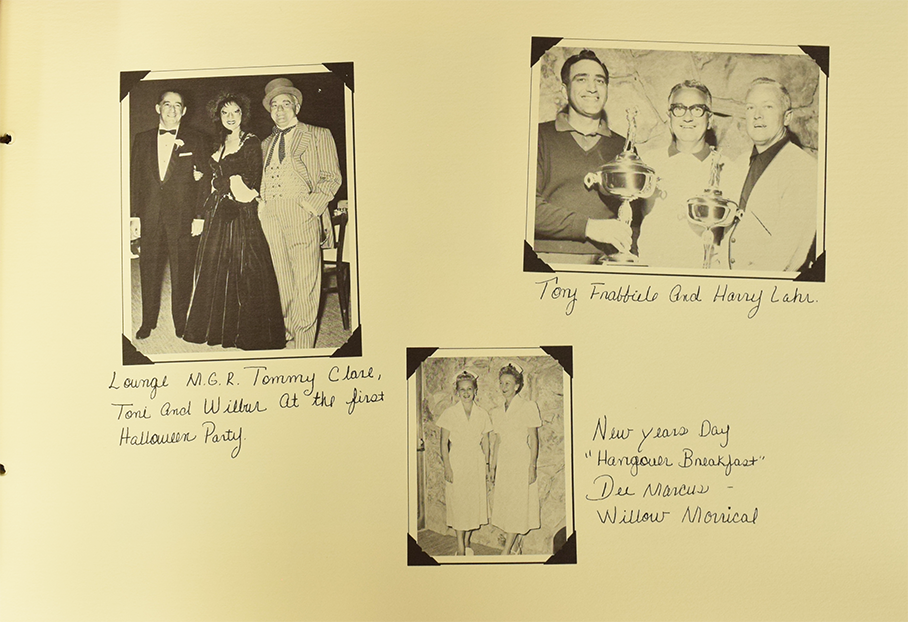 Lounge M.G.R. Tommy Clare,
Toni And Wilbur At the first
Halloween Party.
Tony Frabbiele And Harry Lahr.
New years Day
"Hangover Breakfast"
Dee Marcus -
Willow Morrical